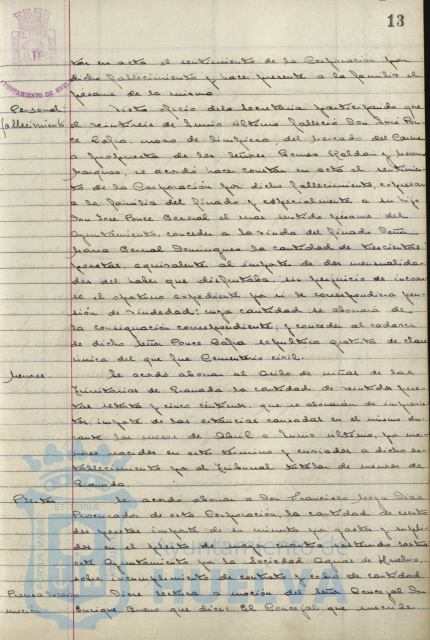 13
AYUNTAMIENTO DE HUELVA
tar en acta el sentimiento de la Corporación por
dicho fallecimiento y hacer presente a la familia el
pésame de la misma
Personal: Visto oficio de la Secretaria participando que
fallecimiento el veintiseis de Junio último falleció Don José Pon-
ce Cofra, mozo de limpieza del mercado del Carmen
a propuesta de los Señores Gomez Roldán y
Marquez, se acordó hacer constar en acta el sentimien-
to de la Corporación por dicho fallecimiento, expresar
a la familia del finado y especialmente a su hijo
Don José Ponce Bernal el mas sentido pésame del
Ayuntamiento, conceder a la viuda del finado Doña
Maria Bernal Dominguez la cantidad de trescientas
pesetas, equivalente al importe de dos mensualida-
des del haber que disfrutaba, sin perjuicio de incoar-
se el oportuno expediente por si le correspondiera pen-
sión de viudedad; cuya cantidad se abonará de
la consignación correspondiente; y conceder al cadaver
de dicho Señor Ponce Cofra sepultura gratuita de clase
única del que fue Cementerio civil.
Menores. Se acordó abonar al Asilo de niñas de las
Trinitarias de Granada la cantidad de pese-
tas setenta y cinco centimos, que se abonarán de
importe de las estancias causadas en el mismo du-
rante los meses de Abril a Junio último, por me-
nores nacidos en este término y enviados a dicho es-
tablecimiento por el Tribunal titular de menores de
Granada.
Pleitos Se acordó abonar a Don Francisco Díaz
Procurador de esta Corporación, la cantidad de
pesetas importe de su minuta por gastos y supli-
dos en el pleito de mayor cuantia sostenido contra
este Ayuntamiento por la Sociedad Aguas de Huelva,
sobre incumplimiento de contrato y cobro de cantidad.
moción Diose lectura a moción del Señor Concejal Don
Enrique Bueno que dice: El Concejal que suscribe
Ayuntamiento de
HUELVA